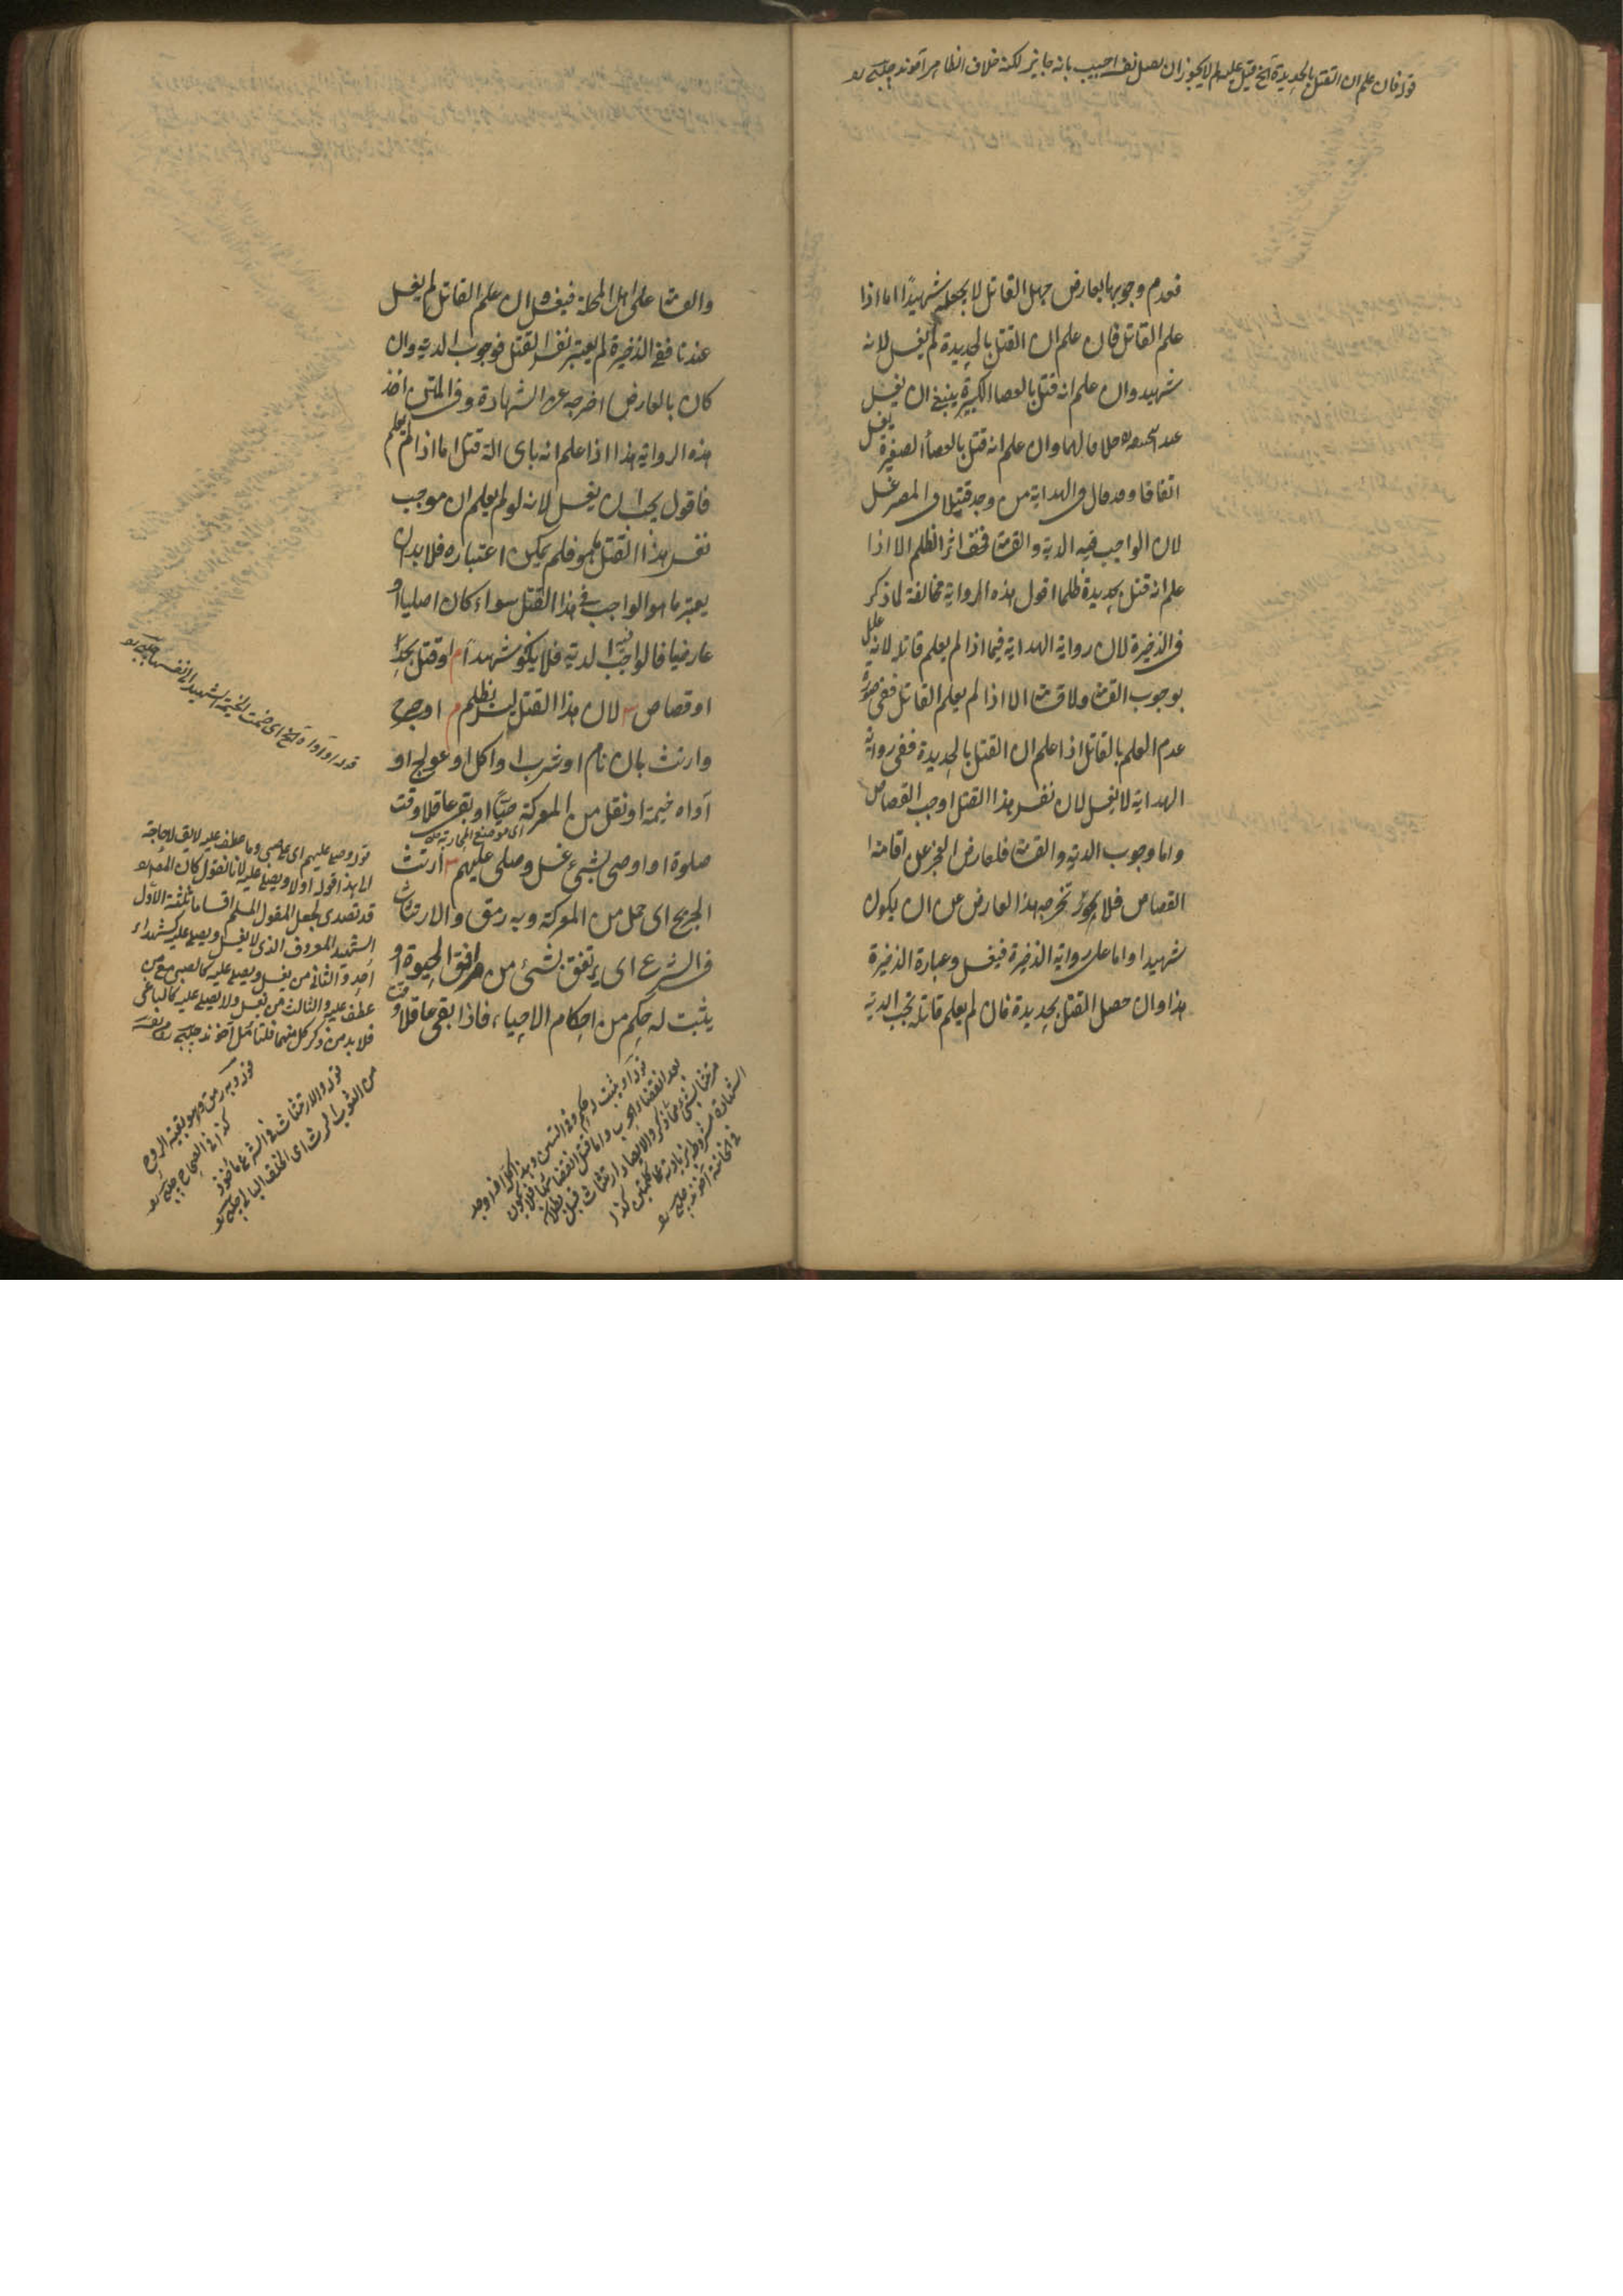 قوله فان علم ان القتل بالحديدة الخ قيل عليه لم لا يجوز ان اجيب بانه جايز لكنه خلاف الظاهر اخوند چلبى
فعدم وجوبها بعارض جهل القاتل لا يجعله شهيدًا اما اذا
علم القاتل فان علم ان القتل بالحديدة لم يغسل لانه
شهيد وان علم انه قتل بالعصا الكبيرة ينبغى ان يغسل
عند ابيحنيفة خلافا لهما وان علم انه قتل بالعصا الصغيرة يغسل
اتفاقا وقد قال فى الهداية من وجد قتيلا فى المصر غسل
لان الواجب فيه الدية والقسامة فخف اثر الظلم الا اذا
علم انه قتل بحديدة ظلما اقول هذه الرواية مخالفة لما ذكر
فى الذخيرة لان رواية الهداية فيما اذا لم يعلم قاتله لانه علل
بوجوب القسامة ولا قسامة الا اذا لم يعلم القاتل ففى صورة
عدم العلم بالقاتل اذا علم ان القتل بالحديدة ففى رواية
الهداية لا يغسل لان نفس هذا القتل اوجب القصاص
واما وجوب الدية والقسامة فلعارض العجز عن اقامة
القصاص فلا يخرجه هذا العارض عن ان يكون
شهيدا واما على رواية الذخيرة فيغسل وعبارة الذخيرة
هذا وان حصل القتل بحديدة فان لم يعلم قاتله تجب الدية
والقسامة على اهل المحلة فيغسل وان علم القاتل لم يغسل
عندنا ففى الذخيرة لم يعتبر نفس القتل فوجوب الدية وان
كان بالعارض اخرجه عن الشهادة وفى المتن اخذ
هذه الرواية هذا اذا علم انه باى الة قتل اما اذا لم يعلم
فاقول يجب ان يغسل لانه لو لم يعلم ان موجب
نفس هذا القتل ما هو فلم يمكن اعتباره فلا بد ان
يعتبر ما هو الواجب فى هذا القتل سواء كان اصليا او
عارضيا فالواجب فيه الدية فلا يكون شهيدا م او قتل بحد
او قصاص ش لان هذا القتل ليس بظلم م او جرح
وارتث بان نام او شرب او اكل او عولج او
آواه خيمة او نقل من المعركة حيًّا او بقى عاقلا وقت
صلوة او اوصى بشئ غسل وصلى عليهم ش ارتث
الجريح اى حمل من المعركة وبه رمق والارتثاث
فى الشرع اى يرتفق بشئ من مرافق الحيوة او
يثبت له حكم من احكام الاحياء، فاذا بقى عاقلا وقت
قوله وصلى عليهم اى على الصبى وما عطف عليه لا يق لا حاجة
الى هذا قوله اولا ويصلى عليه لانا نقول كان المص
قد تصدى لجعل المقتول المسلم اقساما ثلثة الاول
الشهيد المعروف الذى لا يغسل ويصلى عليه كشهداء
احد والثانى من يغسل ويصلى عليه كالصبى مع من
عطف عليه والثالث من يغسل ولا يصلى عليه كالباغى
فلا بد من ذكر كل منهما فلتأمل اخوند چلبى
قوله وبه رمق وهو بقية الروح
كذا فى الصحاح چلبى
قوله والارتثاث فى الشرع مأخوذ
من الثوب الرث اى الخلق البالى چلبى